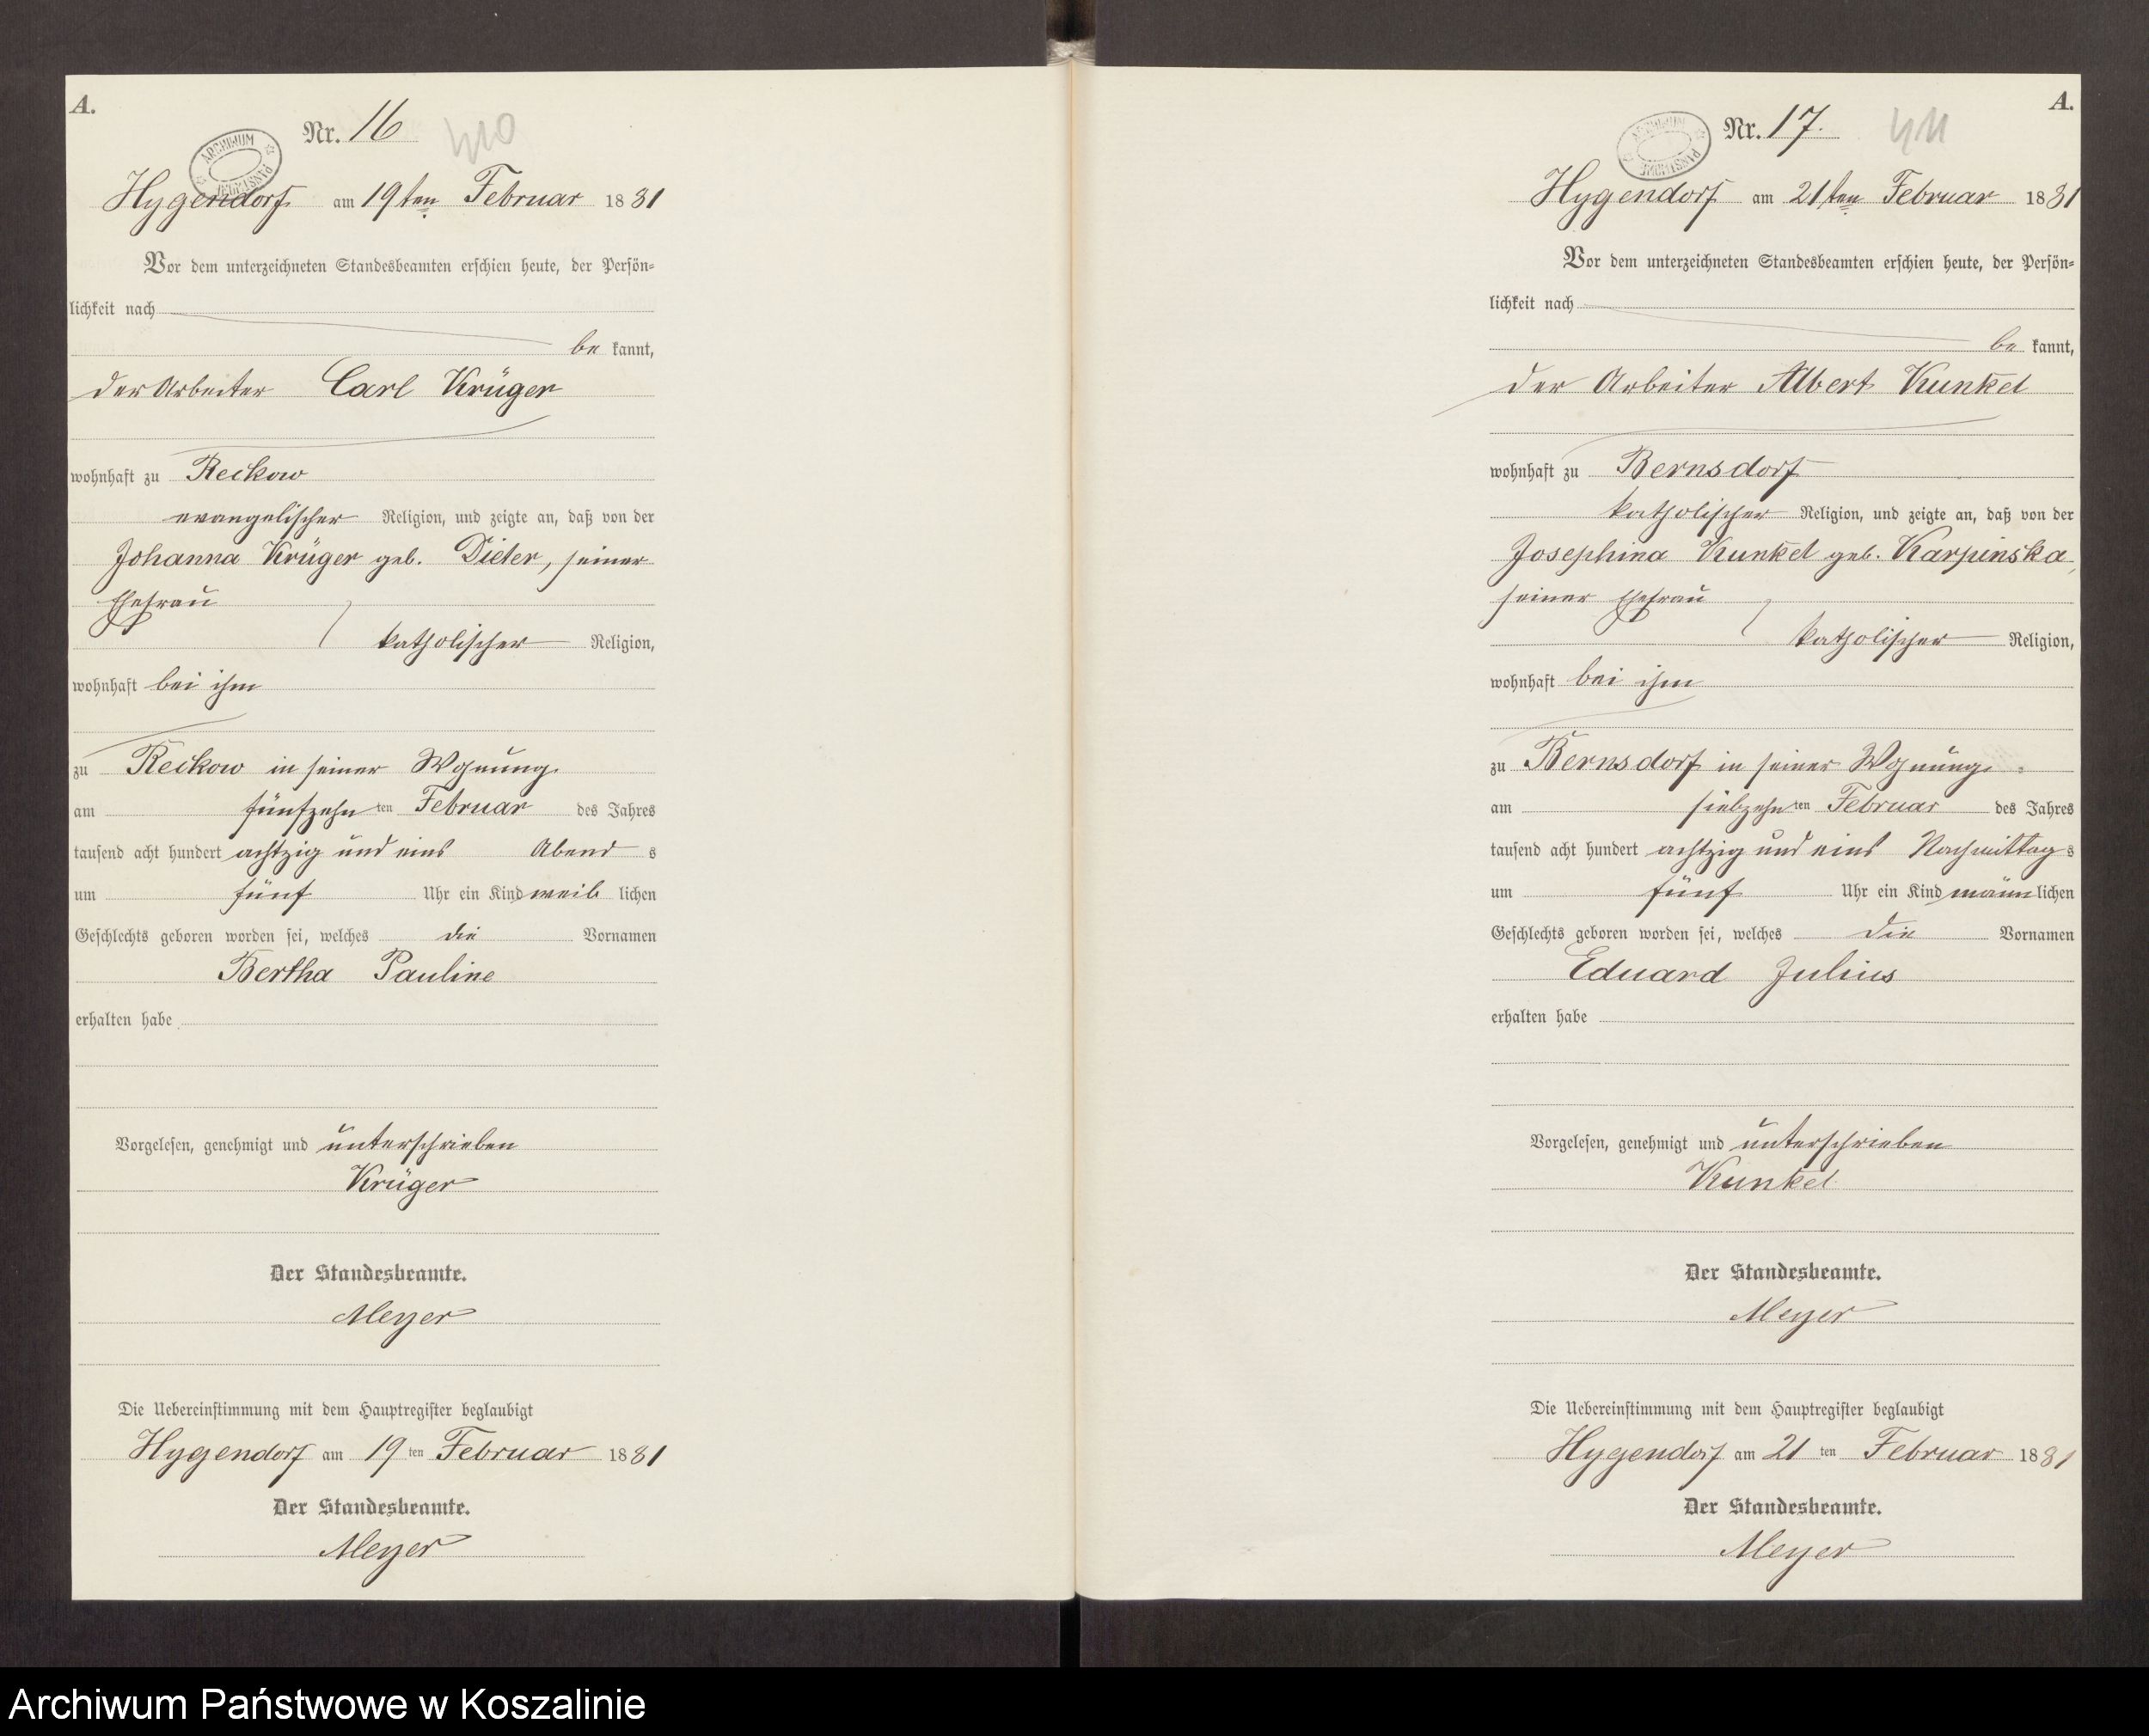 A.
Nr. 16
410
ARCHIWUM PAŃSTWOWE
Hygendorf am 19ten Februar 1881
Vor dem unterzeichneten Standesbeamten erschien heute, der Persön-
lichkeit nach
be kannt,
der Arbeiter Carl Krüger
wohnhaft zu Reckow
evangelischer Religion, und zeigte an, daß von der
Johanna Krüger geb. Dieter, seiner
Ehefrau
katholischer Religion,
wohnhaft bei ihm
zu Reckow in seiner Wohnung
am fünfzehn ten Februar des Jahres
tausend acht hundert achtzig und eins Abend s
um fünf Uhr ein Kind weib lichen
Geschlechts geboren worden sei, welches die Vornamen
Bertha Pauline
erhalten habe
Vorgelesen, genehmigt und unterschrieben
Krüger
Der Standesbeamte.
Meyer
Die Uebereinstimmung mit dem Hauptregister beglaubigt
Hygendorf am 19 ten Februar 1881
Der Standesbeamte.
Meyer
A.
Nr. 17.
411
ARCHIWUM PAŃSTWOWE
Hygendorf am 21ten Februar 1881
Vor dem unterzeichneten Standesbeamten erschien heute, der Persön-
lichkeit nach
be kannt,
der Arbeiter Albert Kunkel
wohnhaft zu Bernsdorf
katholischer Religion, und zeigte an, daß von der
Josephina Kunkel geb. Karpinska,
seiner Ehefrau
katholischer Religion,
wohnhaft bei ihm
zu Bernsdorf in seiner Wohnung
am siebzehn ten Februar des Jahres
tausend acht hundert achtzig und eins Nachmittag s
um fünf Uhr ein Kind männ lichen
Geschlechts geboren worden sei, welches die Vornamen
Eduard Julius
erhalten habe
Vorgelesen, genehmigt und unterschrieben
Kunkel
Der Standesbeamte.
Meyer
Die Uebereinstimmung mit dem Hauptregister beglaubigt
Hygendorf am 21 ten Februar 1881
Der Standesbeamte.
Meyer
Archiwum Państwowe w Koszalinie